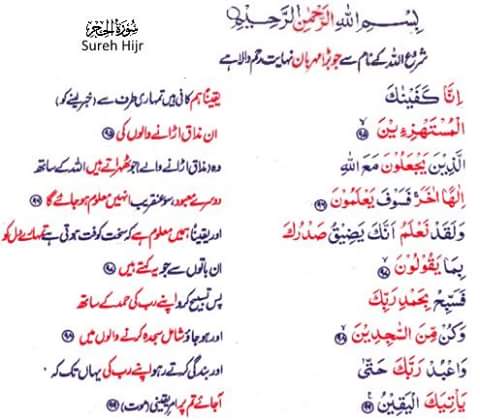 سُوْرَةُ الحِجْر
Sureh Hijr
بِسْمِ اللهِ الرَّحْمٰنِ الرَّحِيْمِ
شروع اللہ کے نام سے جو بڑا مہربان نہایت رحم والا ہے
اِنَّا كَفَيْنٰكَ
الْمُسْتَهْزِءِيْنَ ۹۵
الَّذِيْنَ يَجْعَلُوْنَ مَعَ اللهِ
اِلٰهًا اٰخَرَ فَسَوْفَ يَعْلَمُوْنَ ۹۶
وَلَقَدْ نَعْلَمُ اَنَّكَ يَضِيْقُ صَدْرُكَ
بِمَا يَقُوْلُوْنَ ۹۷
فَسَبِّحْ بِحَمْدِ رَبِّكَ
وَكُنْ مِّنَ السّٰجِدِيْنَ ۹۸
وَاعْبُدْ رَبَّكَ حَتّٰى
يَاْتِيَكَ الْيَقِيْنُ ۹۹
یقیناً ہم کافی ہیں تمہاری طرف سے (خبر لینے کو)
ان مذاق اڑانے والوں کی ۹۵
وہ (مذاق اڑانے والے) جو ٹھہراتے ہیں اللہ کے ساتھ
دوسرے معبود، سو عنقریب انہیں معلوم ہو جائے گا ۹۶
اور یقیناً ہمیں معلوم ہے کہ سخت کوفت ہوتی ہے تمہارے دل کو
ان باتوں سے جو یہ کہتے ہیں ۹۷
پس تسبیح کرو اپنے رب کی حمد کے ساتھ
اور ہو جاؤ شامل سجدہ کرنے والوں میں ۹۸
اور بندگی کرتے رہو اپنے رب کی یہاں تک کہ
آ جائے تم پر امر یقینی (موت) ۹۹